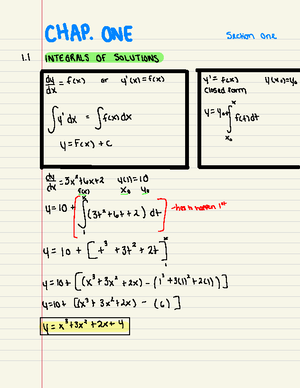 CHAP. ONE
Section One
1.1 INTEGRALS OF SOLUTIONS
dy/dx = f(x) or y'(x) = f(x)
∫ y' dx = ∫ f(x) dx
y = F(x) + C
y' = f(x) y(x₀) = y₀
closed form
y = y₀ + ∫ₓ₀ˣ f(t) dt
dy/dx = 3x² + 6x + 2 y(1) = 10
f(x) x₀ y₀
y = 10 + [ ∫₁ˣ (3t² + 6t + 2) dt ]
y = 10 + [ t³ + 3t² + 2t ]₁ˣ
y = 10 + [ (x³ + 3x² + 2x) - (1³ + 3(1)² + 2(1)) ]
y = 10 + [ (x³ + 3x² + 2x) - (6) ]
y = x³ + 3x² + 2x + 4